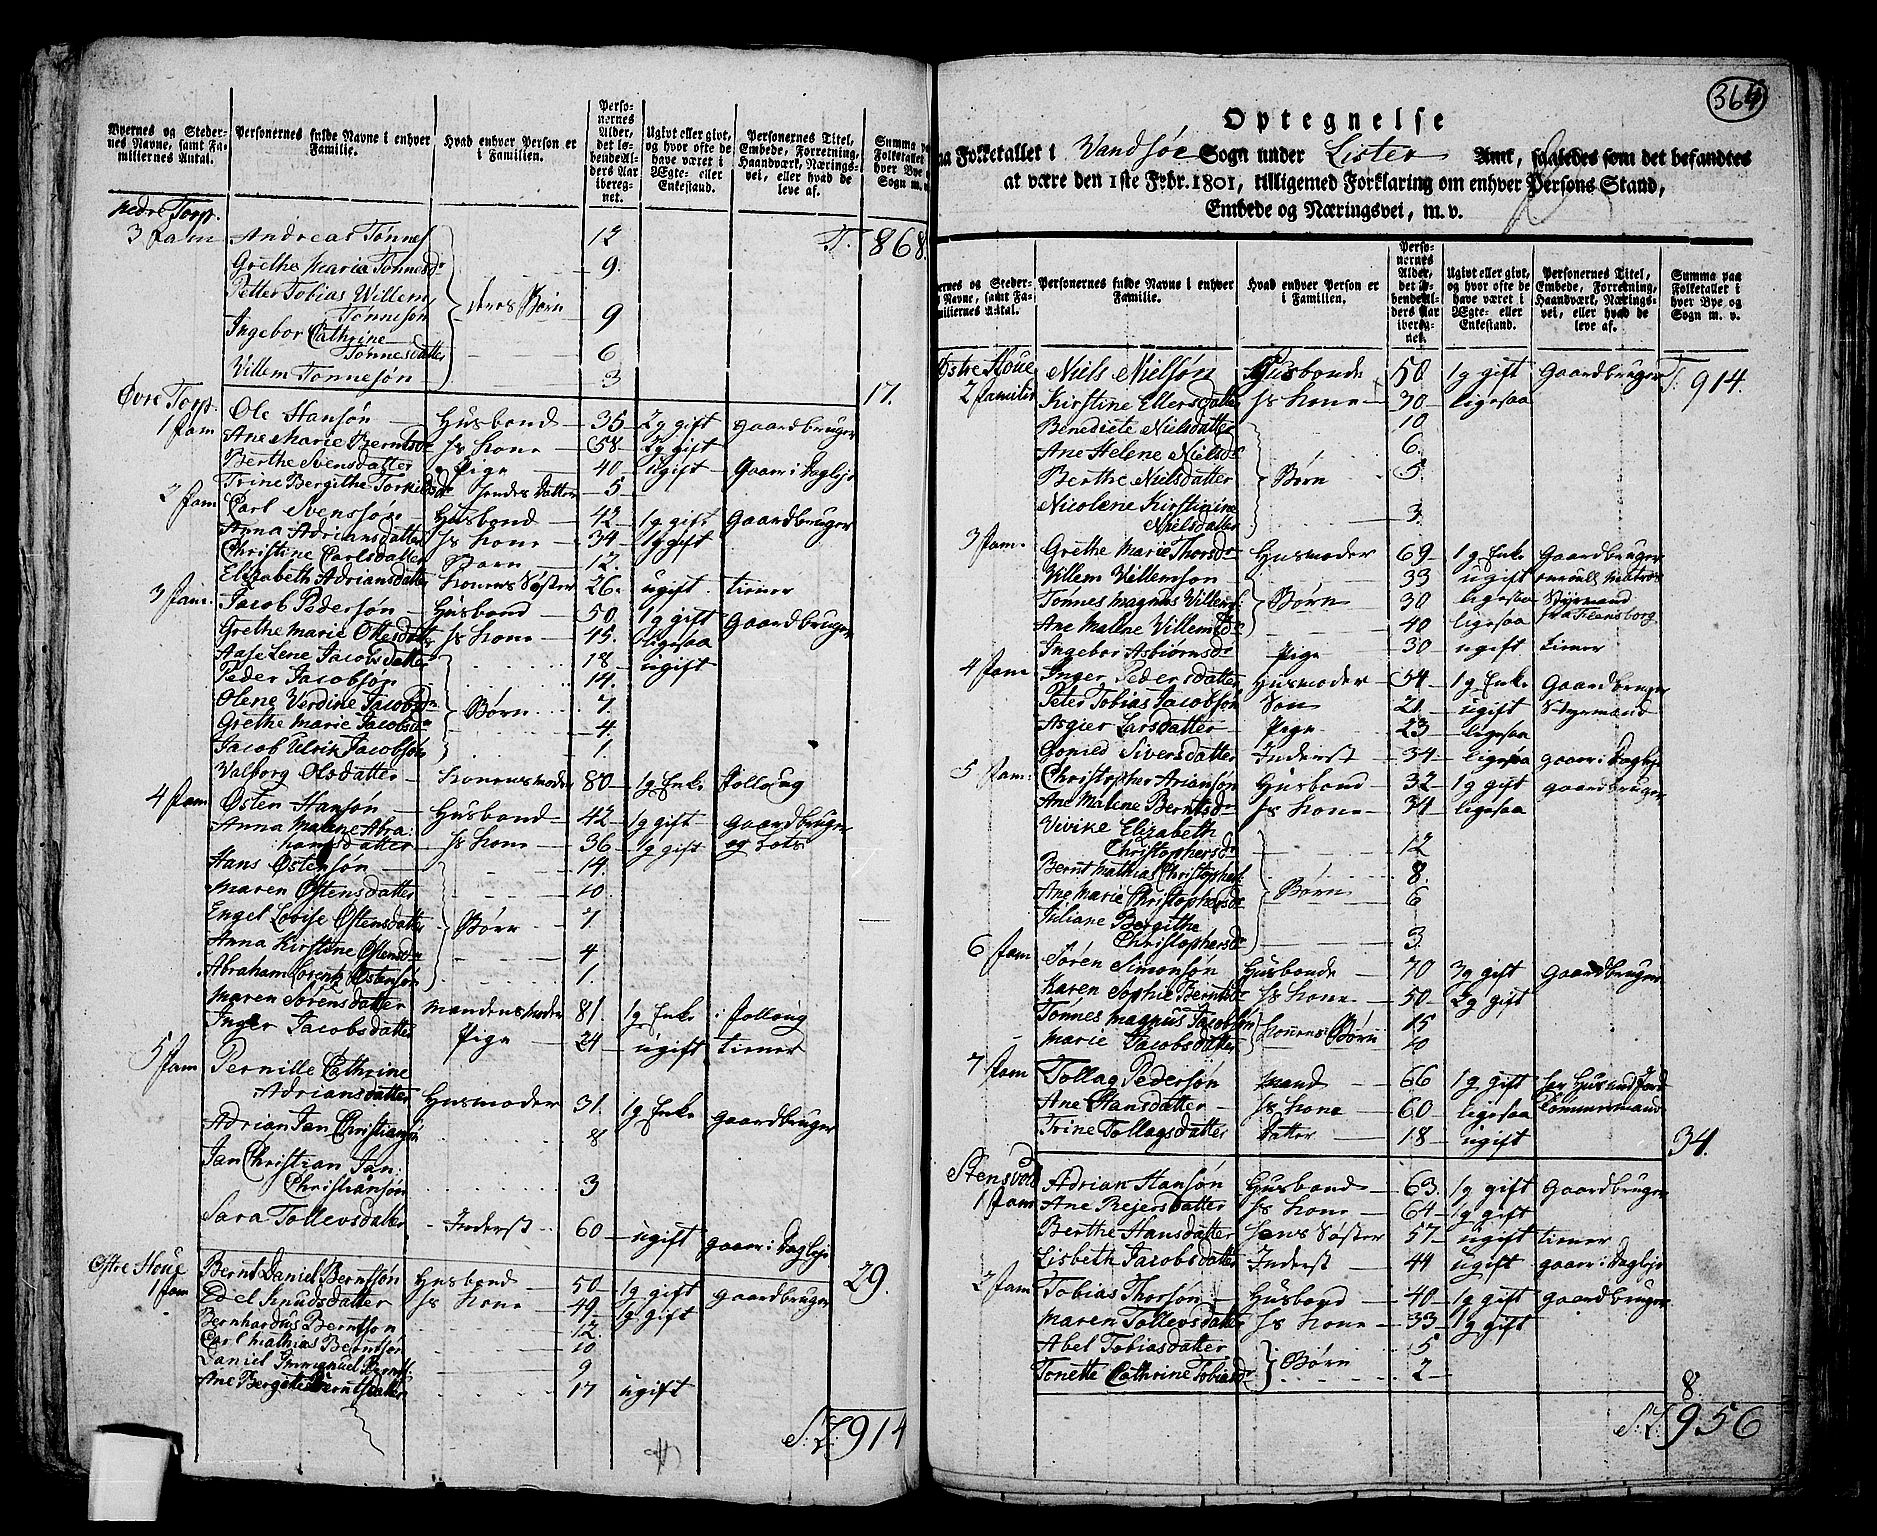 Byernes og Steder-
nes Navne, samt Fa-
miliernes Antal.
Personernes fulde Navne i enhver
Familie.
Hvad enhver Person er
i Familien.
Perso-
nernes
Alder,
det lø-
bende Al-
ders Aar
ibereg-
net.
Ugivt eller givt,
og hvor ofte de
have været i
Ægte- eller
Enkestand.
Personernes Titel,
Embede, Forretning,
Haandværk, Nærings-
vei, eller hvad de
leve af.
Summa paa
Folketallet i
hver Bye og
Sogn m. v.
nedre Torp.
3 fam Andreas Tønnes 12 T. 868.
Grethe Maria Tønnesdr 9.
Petter Tobias Willem
Tønnesøn deres Børn 9
Ingebor Cathrine
Tønnesdatter 6
Villem Tønnesøn 3
17.
Øvre Torp.
1 fam Ole Hansøn Husbond 35 2g gift Gaardbruger
Ane Marie Berntsdr hs Kone 58 2g gift
Berthe Svensdatter Pige 40 ugift Gaar i Dagleje
Trine Bergithe Torkildsdr hendes Datter 5
2 fam Carl Svensson Husbond 42 1g gift Gaardbruger
Anna Adriansdatter hs Kone 34 1g gift
Christine Carlsdatter Barn 12.
Elizabeth Adriansdatter Konens Søster 26. ugift tiener
3 fam. Jacob Pedersøn Husbond 50 1g gift Gaardbruger
Grethe Marie Ottesdatter hs Kone 45. ligesaa
Aase Lene Jacobsdatter 18 ugift
Peder Jacobsøn 14.
Olene Verdine Jacobsdr Børn 7.
Grethe Marie Jacobsdr 4.
Jacob Ulrik Jacobsøn 1.
Valborg Olsdatter Konens moder 80 1g Enke Follaug
4 fam Østen Hansøn Husbond 42 1g gift Gaardbruger
Anna Malene Abra:
hamsdatter hs Kone 36 1g gift og Lots
Hans Østensøn 14.
Maren Østensdatter 10
Engel Lovise Østensdatter Børn 7
Anna Kirstine Østensdr 4
Abraham Lorentz Østensøn 1.
Maren Sørensdatter mandens moder 81. 1g Enke i Follaug
Inger Jacobsdatter Pige 24 ugift tiener
5 fam Pernille Cathrine
Adriansdatter Husmoder 31. 1g Enke Gaardbruger
Adrian Jan Christiansøn 8
Jan Christian Jan:
Christiansøn 3
Sara Tollevsdatter Inderst 60 ugift gaar i Dagleje
29.
Østre Houe
1 fam Bernt Daniel Berntsøn Husbond 50 1g gift Gaardbruger
Edel Knudsdatter hs Kone 49 1g gift
Bernhardus Berntsøn 12.
Carl Mathias Berntsøn 10
Daniel Immanuel Bernts: 9
Ane Bergete Berntsdatter 17 ugift
S: T. 914
364
Optegnelse
paa Folketallet i Vandsøe Sogn under Lister Amt, saaledes som det befandtes
at være den 1ste Febr. 1801, tilligemed Forklaring om enhver Persons Stand,
Embede og Næringsvei, m. v.
Byernes og Steder-
nes Navne, samt Fa-
miliernes Antal.
Personernes fulde Navne i enhver
Familie.
Hvad enhver Person er
i Familien.
Perso-
nernes
Alder,
det lø-
bende Al-
ders Aar
ibereg-
net.
Ugivt eller givt,
og hvor ofte de
have været i
Ægte- eller
Enkestand.
Personernes Titel,
Embede, Forretning,
Haandværk, Nærings-
vei, eller hvad de
leve af.
Summa paa
Folketallet i
hver Bye og
Sogn m. v.
Østre Houe Niels Nielsøn Husbonde 50 1g gift Gaardbruger T: 914.
2 familie Kirstine Ellersdatter hs Kone 30 ligesaa
Benedicte Nielsdatter 10
Ane Helene Nielsdr 6.
Berthe Nielsdatter Børn 5.
Nicolene Kirstinine
Nielsdatter 3.
3 fam. Grethe Marie Thorsdr Husmoder 69 1g Enke Gaardbruger
Villem Villemsøn 33 ugift matros
Tønnes Magnus Villems: Børn 30 ligesaa Styrmand
fra Flensborg
Ane Malene Villemsdr 40 ligesaa
Ingebor Asbiørnsdr Pige 30 ugift tiener
4 fam Inger Pedersdatter Husmoder 54 1g Enke Gaardbruger
Peter Tobias Jacobsøn Søn 21. ugift Styrmand
Asgier Larsdatter Pige 23 ligesaa
Gonied Siversdatter Inderst 34 ligesaa gaar i Dagleje
5 fam: Christopher Ariansøn Husbond 32 1g gift gaardbruger
Ane Malene Berntsdr hs Kone 34 ligesaa
Vivike Elizabeth
Christophersdr 12
Bernt Mathias Christophers: 8.
Ane Marie Christophersdr Børn 6
Juliane Bergithe
Christophersdr 3.
6 fam Søren Simonsøn Husbonde 70 3g gift Gaardbruger
Karen Sophie Berntsdr hs Kone 50 2g gift
Tønnes Magnus Jacobsøn Konens Børn 15
Marie Jacobsdatter 10
7 fam Tollag Pedersøn mand 66 1g gift
Ane Hansdatter hs Kone 60 ligesaa Tømmermand
Trine Tollagsdatter Datter 18 ugift
34.
Stensvold
1 fam Adrian Hansøn Husbond 63. 1g gift Gaardbruger
Ane Rejersdatter hs Kone 64 1g gift
Berthe Hansdatter hans Søster 57 ugift tiener
Lisbeth Jacobsdatter Inderst 44 ugift gaar i Dagleje
2 fam Tobias Thorsøn Husbond 40 1g gift Gaardbruger
Maren Tollevsdatter hs Kone 33 1g gift
Abel Tobiasdatter Børn 5
Tonette Cathrine Tobiasdr 2
8.
S: T. 956